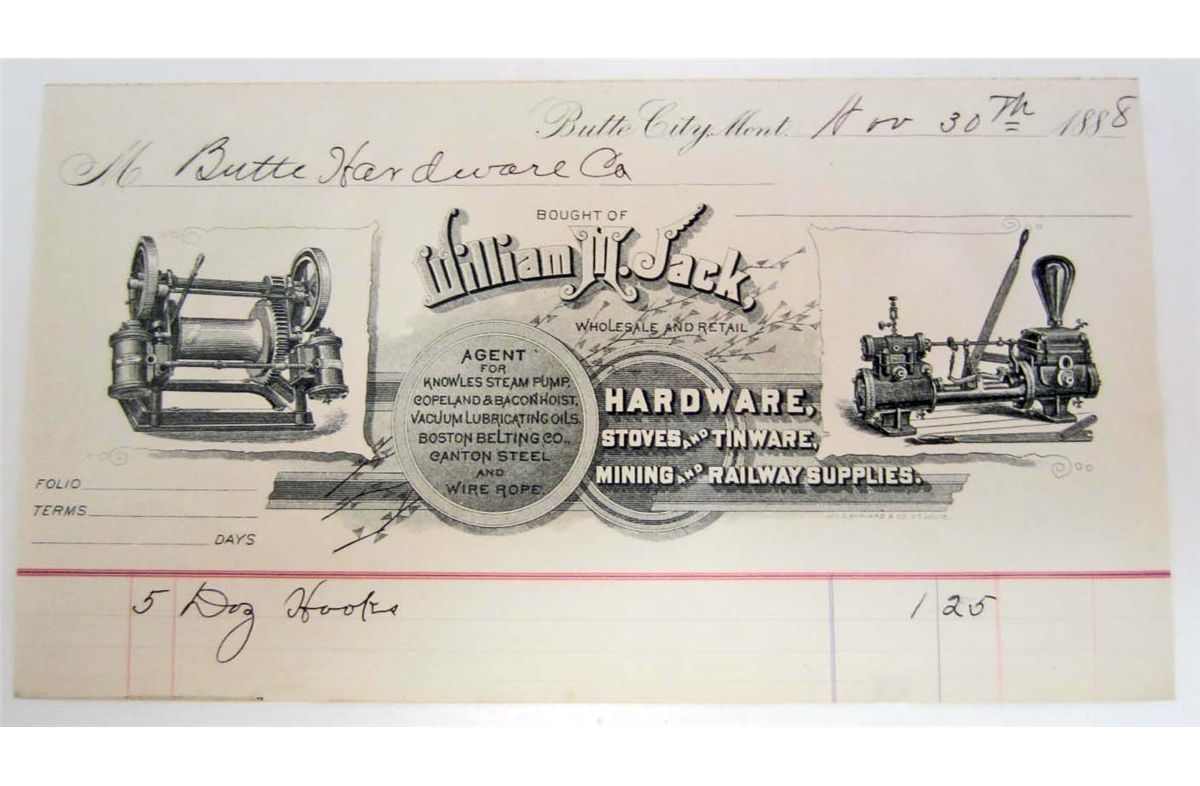 Butte City, Mont. Nov 30Th 1888
M Butte Hardware Co
BOUGHT OF
William M. Jack.
WHOLESALE AND RETAIL
AGENT
FOR
KNOWLES STEAM PUMP,
COPELAND & BACON HOIST,
VACUUM LUBRICATING OILS.
BOSTON BELTING CO.,
CANTON STEEL
AND
WIRE ROPE.
HARDWARE,
STOVES AND TINWARE,
MINING AND RAILWAY SUPPLIES.
FOLIO
TERMS
DAYS
5 Doz Hooks 1 25